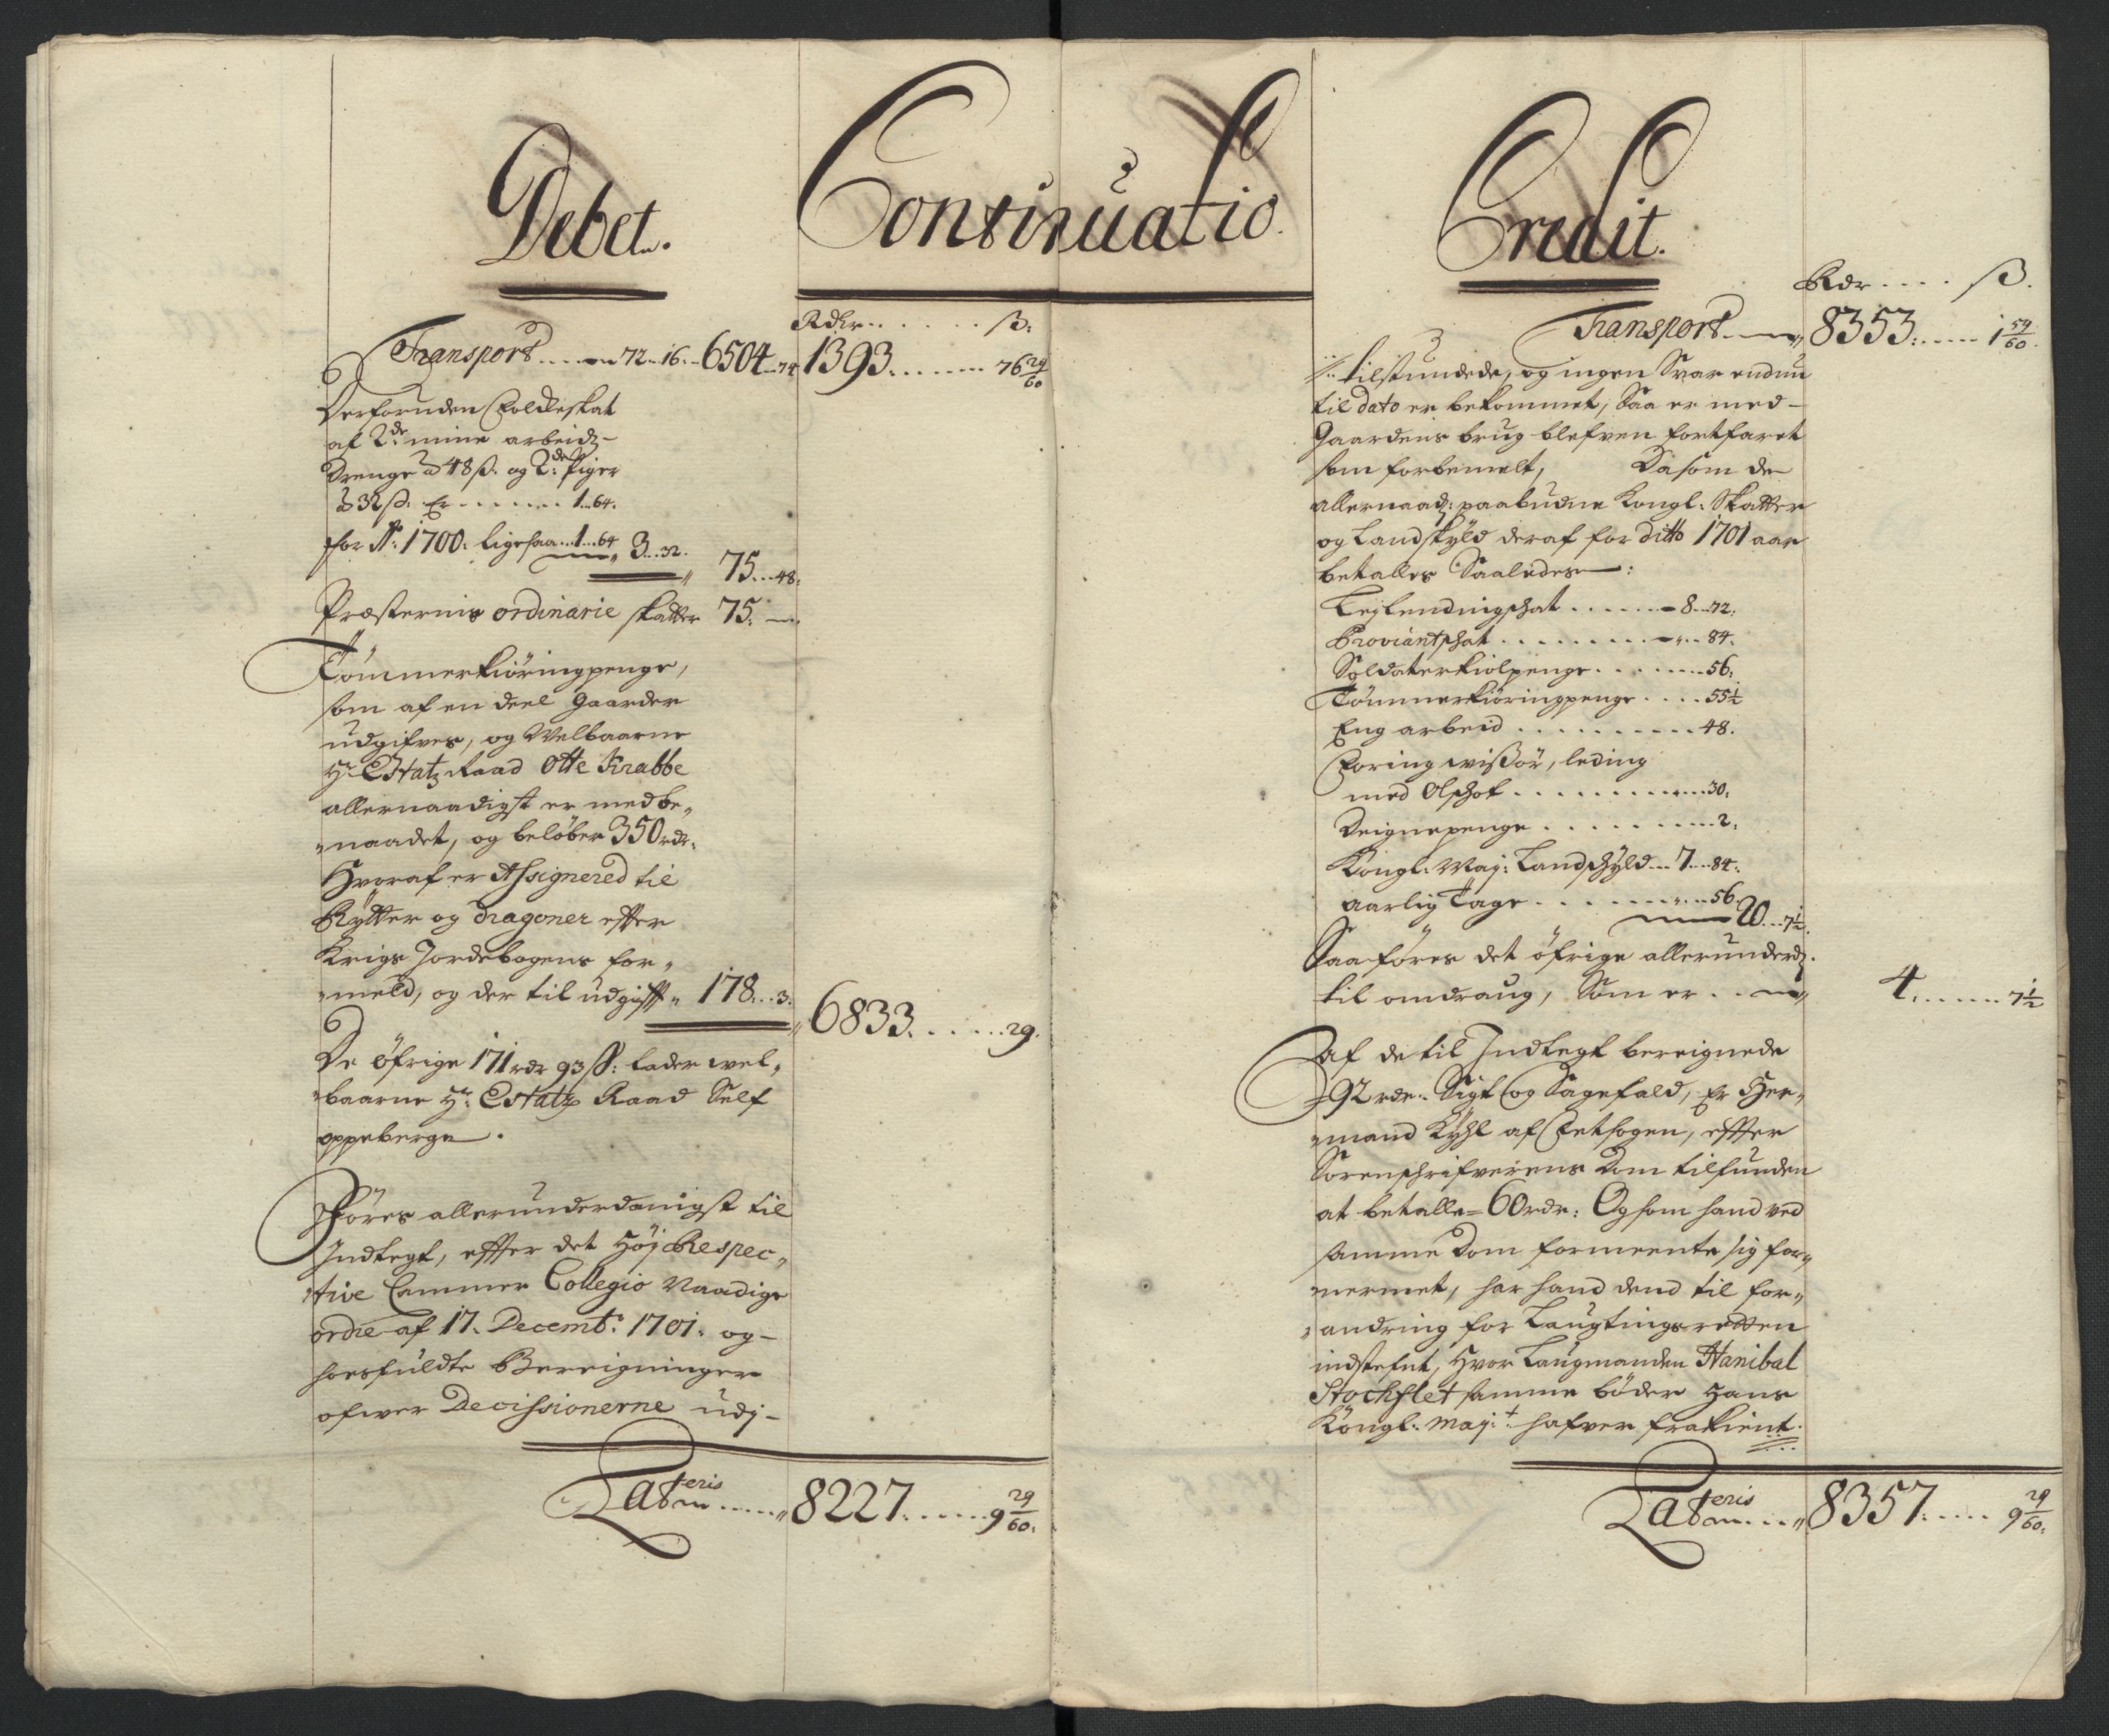 Debet.
Continuatio.
Rdlr...... ß:
Transport......72..16...6504..74 1393......... 76 29/60
Derforuden Folckeskat
af 2de mine arbeidz-
Drenge à 48 ß. og 2de Piger
à 32 ß. Er....... 1..64.
for Ao. 1700. ligesaa...1..64 3...32.
75...48.
Præsternis ordinarie skatter 75. —
Tømmerkiøringpenge,
som af en deel Gaarder
udgifves, og Welbaarne
Hr. Etatz Raad Otte Krabbe
allernaadigst er med be„
„naadet, og beløber 350 rdr.
Hvoraf er Assignered til
Rytter og Dragoner effter
Krigs Jordebogens for„
„meld, og der til udgifft„ 178...3.
6833.......29.
De øfrige 171 rdr 93 ß: lader wel„
„baarne Hr. Etatz Raad Self
oppeberge.
Føres allerunderdanigst til
Indtegt, effter det Høj Respec„
„tive Cammer Collegio Naadige
ordre af 17. Decembr. 1701. og-
hosfuldte Bereigninger
ofwer Decissionerne udj-
Lateris......„ 8227.......9 29/60.
Credit.
Rdr.... ß.
Transport...—„ 8353...... 1 59/60.
tilstundede, og ingen Svar endnu
til dato er bekommet, Saa er med-
Gaardens brug blefven fortfaret
som forbemelt, Da som de
allernaadz: paabudne Kongl: Skatter
og Landskyld deraf for ditto 1701 aar
betalles Saaledes—:
Lejlendingschat....... 8...72.
Proviantschat.........„... 84.
Soldaterkiolpenge........56.
Tømmerkiøringpenge.... 55 1/2
Eng arbeid..........48.
Foring wißør, leding
med Olschot..........30.
Deignepenge.........2.
Kongl. May: Landschyld... 7...84.
aarlig Tage.......„...56.
20...7 1/2.
Saa føres det øfrige allerunderdz.
til omdraug, Som er..—„ 4.......7 1/2
Af de til Indtegt bereignede
92 rdr. Sigt og Sagefald, Er Her„
„mand Kyhl af Fetsogen, effter
Sorenschrifverens Dom tilfunden
at betalle= 60 rdr: Og som hand ved
samme Dom formeente sig for„
nermet, har hand dend til for„
„andring for Laugtingsretten
indstefnt, Hvor Laugmanden Hanibal
Stockflet samme bøder Hans
Kongl. Maj:t hafver frakient.
Lateris....„ 8357...... 9 29/60.